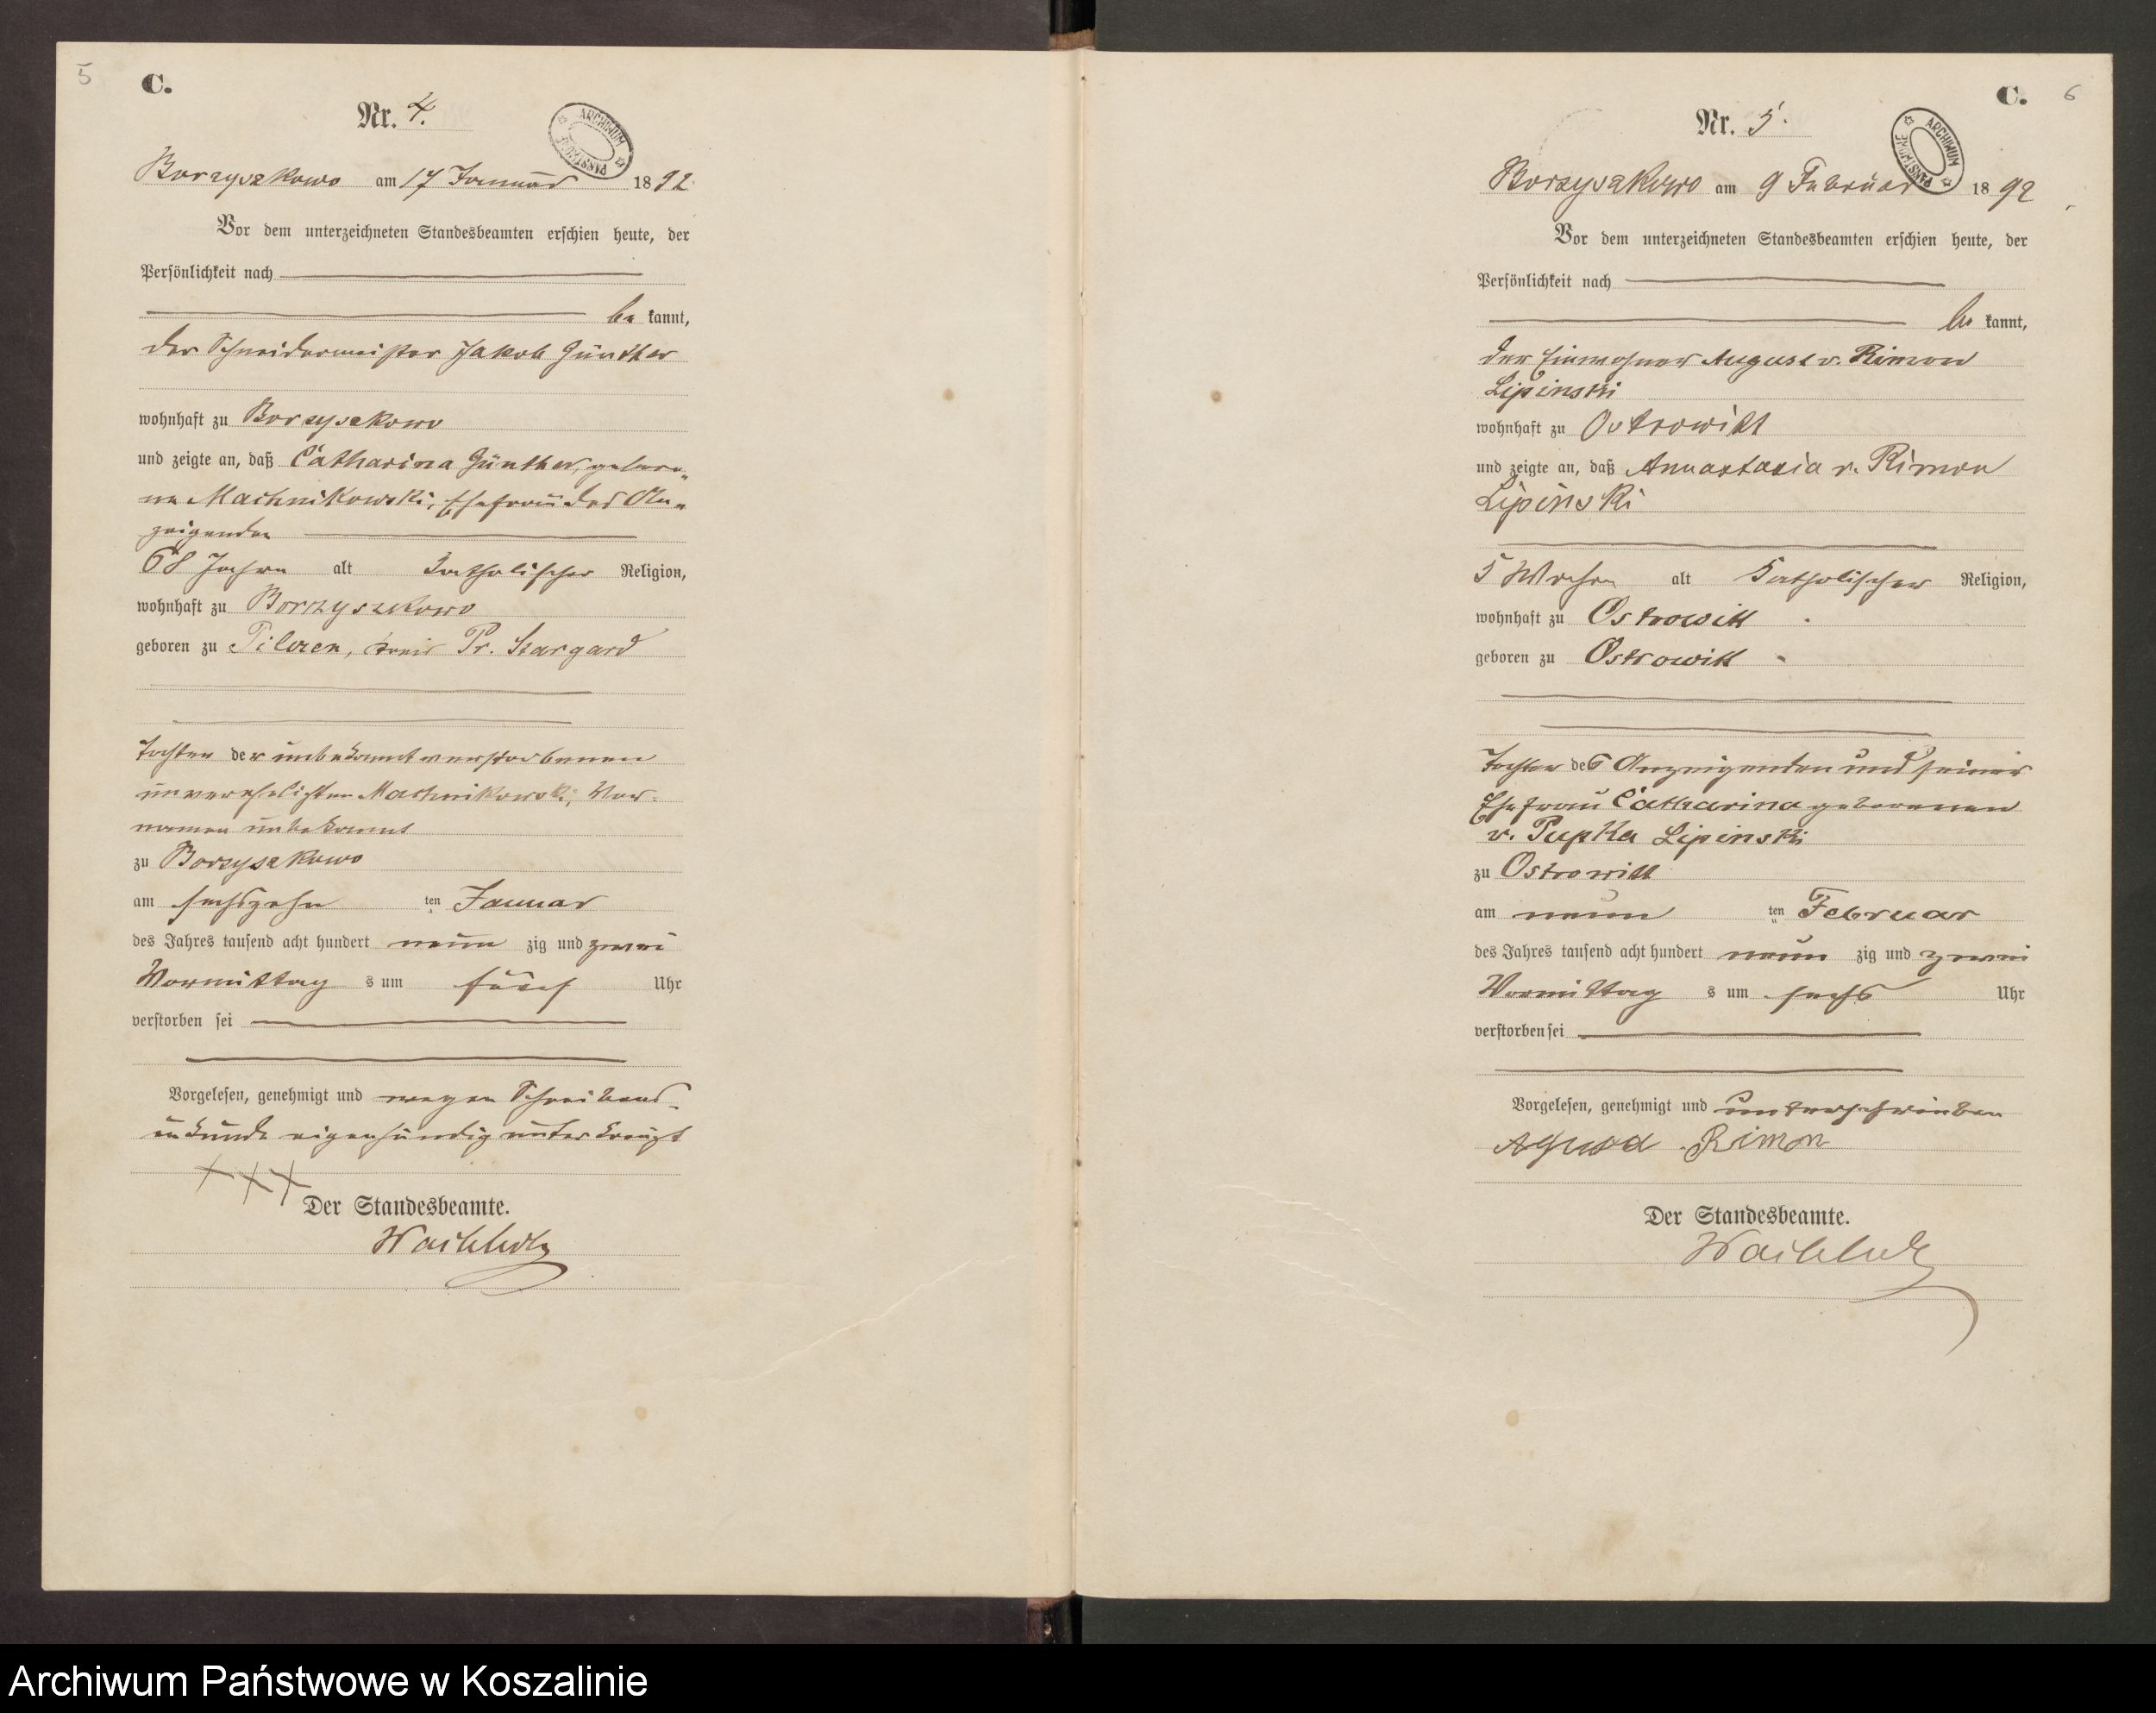 5
C.
Nr. 4.
ARCHIWUM PAŃSTWOWE
Borzyszkowo am 17 Januar 1892
Vor dem unterzeichneten Standesbeamten erschien heute, der
Persönlichkeit nach
be kannt,
der Schneidermeister Jakob Günther
wohnhaft zu Borzyszkowo
und zeigte an, daß Catharina Günther, gebore-
ne Machnikowski, Ehefrau des An-
zeigenden
68 Jahre alt katholischer Religion,
wohnhaft zu Borzyszkowo
geboren zu Kreis Pr. Stargard
Tochter der unbekannt verstorbenen
unverehelichten Machnikowski, Vor-
namen unbekannt
zu Borzyszkowo
am sechszehn ten Januar
des Jahres tausend acht hundert neun zig und zwei
Vormittag s um fünf Uhr
verstorben sei
Vorgelesen, genehmigt und wegen Schreibens-
unkunde eigenhändig unterkreuzt
+++
Der Standesbeamte.
Wachholz
C. 6
Nr. 5.
ARCHIWUM PAŃSTWOWE
Borzyszkowo am 9 Februar 1892
Vor dem unterzeichneten Standesbeamten erschien heute, der
Persönlichkeit nach
be kannt,
der Einwohner August v. Rimon
Lipinski
wohnhaft zu Ostrowitt
und zeigte an, daß Annastasia v. Rimon
Lipinski
5 Wochen alt katholischer Religion,
wohnhaft zu Ostrowitt
geboren zu Ostrowitt
Tochter des Anzeigenden und seiner
Ehefrau Catharina geborenen
v. Pupka Lipinski
zu Ostrowitt
am neun ten Februar
des Jahres tausend acht hundert neun zig und zwei
Vormittag s um sechs Uhr
verstorben sei
Vorgelesen, genehmigt und unterschrieben
Rimon
Der Standesbeamte.
Wachholz
Archiwum Państwowe w Koszalinie